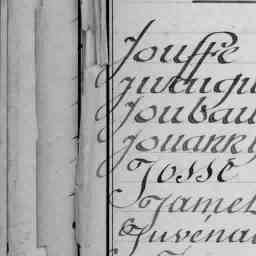 Jouffe
Joubau
Jouann
Josse
Jamet
Juvéna